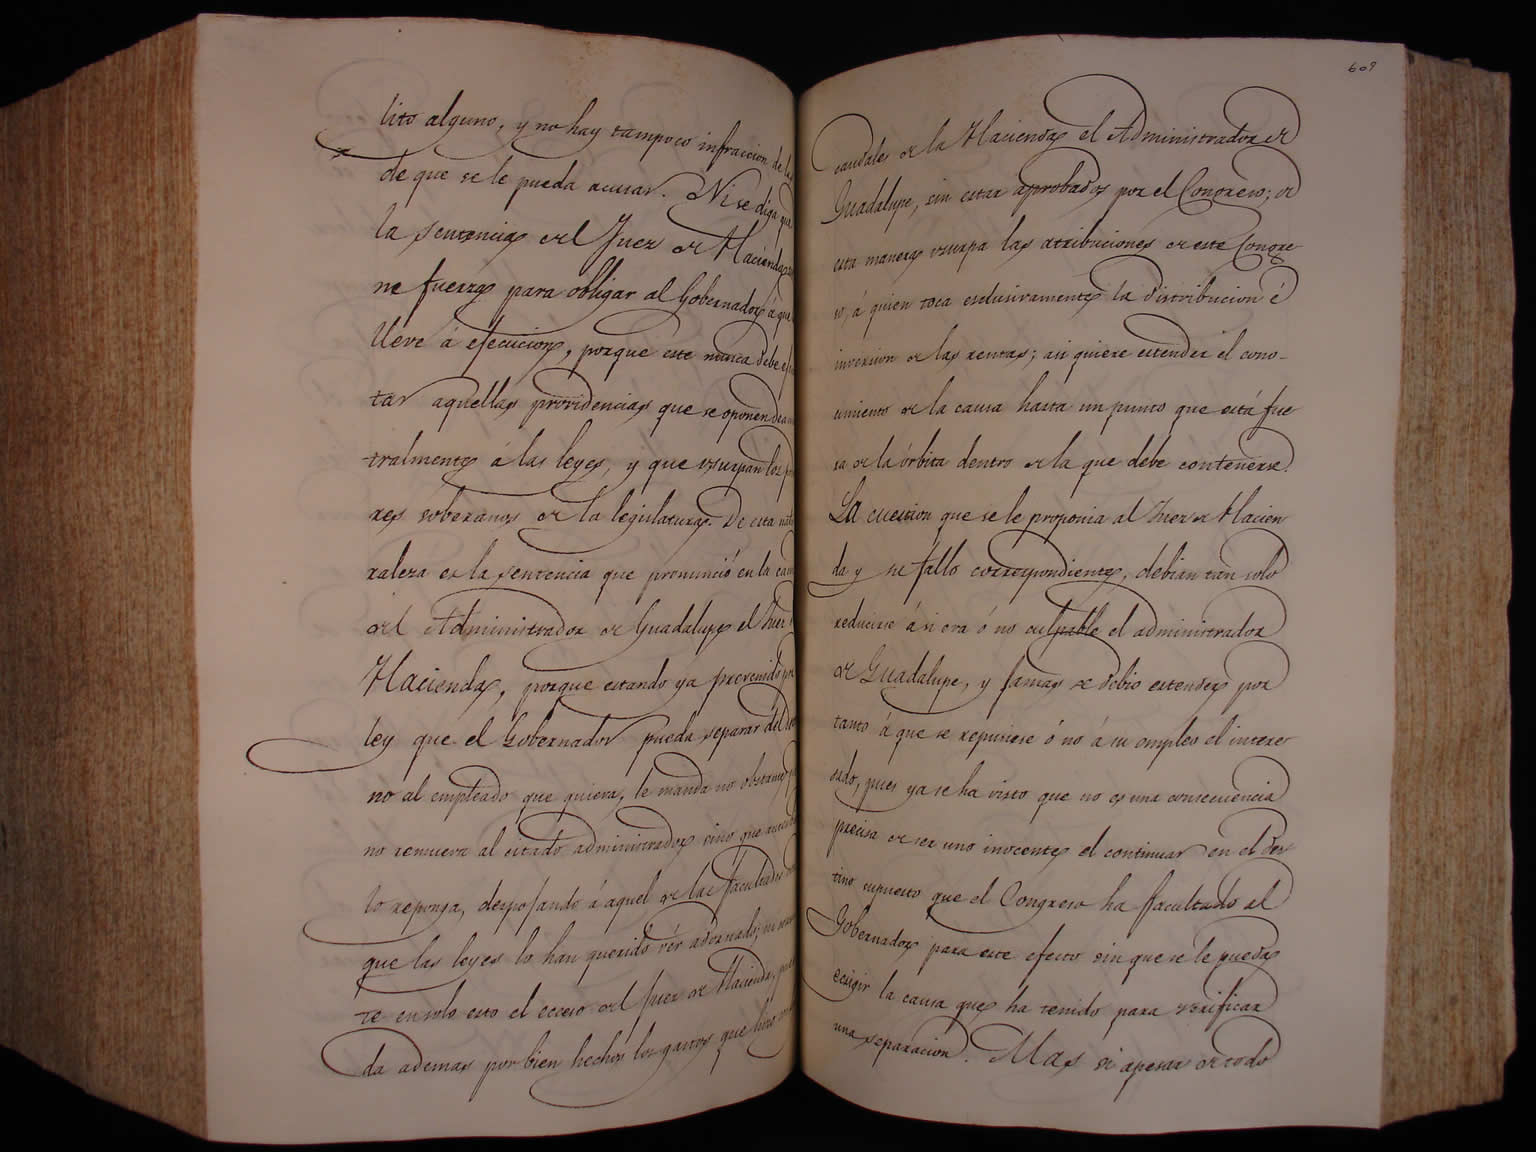 lito alguno, y no hay tampoco infraccion de las
de que se le pueda acusar. Ni se diga que
la sentencia del Juez de Hacienda
ne fuerza para obligar al Gobernador á que
lleve á efecucion, porque este nunca debe
tar aquellas providencias que se oponen
tralmente á las leyes, y que usurpan los
res soberanos de la legislatura. De esta
raleza es la sentencia que pronunció en la
del Administrador de Guadalupe el Juez
Hacienda, porque estando ya prevenido por
ley que el Gobernador pueda separar del
no al empleado que quiera, le manda no obstante
no remueva al citado administrador sino que
lo reponga, despojando á aquel de las facultades
que las leyes lo han querido vér adornado;
te en solo esto el ecceso del Juez de Hacienda,
da ademas por bien hechos los gastos que hizo
609
caudales de la Hacienda el Administrador de
Guadalupe, sin estar aprobados por el Congreso; de
esta manera usurpa las atribuciones de este Congre
so, á quien toca esclusivamente la distribucion é
inversion de las rentas; asi quiere estender el cono-
cimiento de la causa hasta un punto que está fue
ra de la órbita dentro de la que debe contenerse.
La cuestion que se le proponia al Juez de Hacien
da y su fallo correspondiente, debian tan solo
reducirse á si era ó no culpable el administrador
de Guadalupe, y jamas se debio estender por
tanto á que se repusiese ó no á su empleo el intere
sado, pues ya se ha visto que no es una consecuencia
precisa de ser uno inocente el continuar en el des
tino supuesto que el Congreso ha facultado al
Gobernador para este efecto sin que se le pueda
ecsigir la causa que ha tenido para verificar
una separacion. Mas si apesar de todo